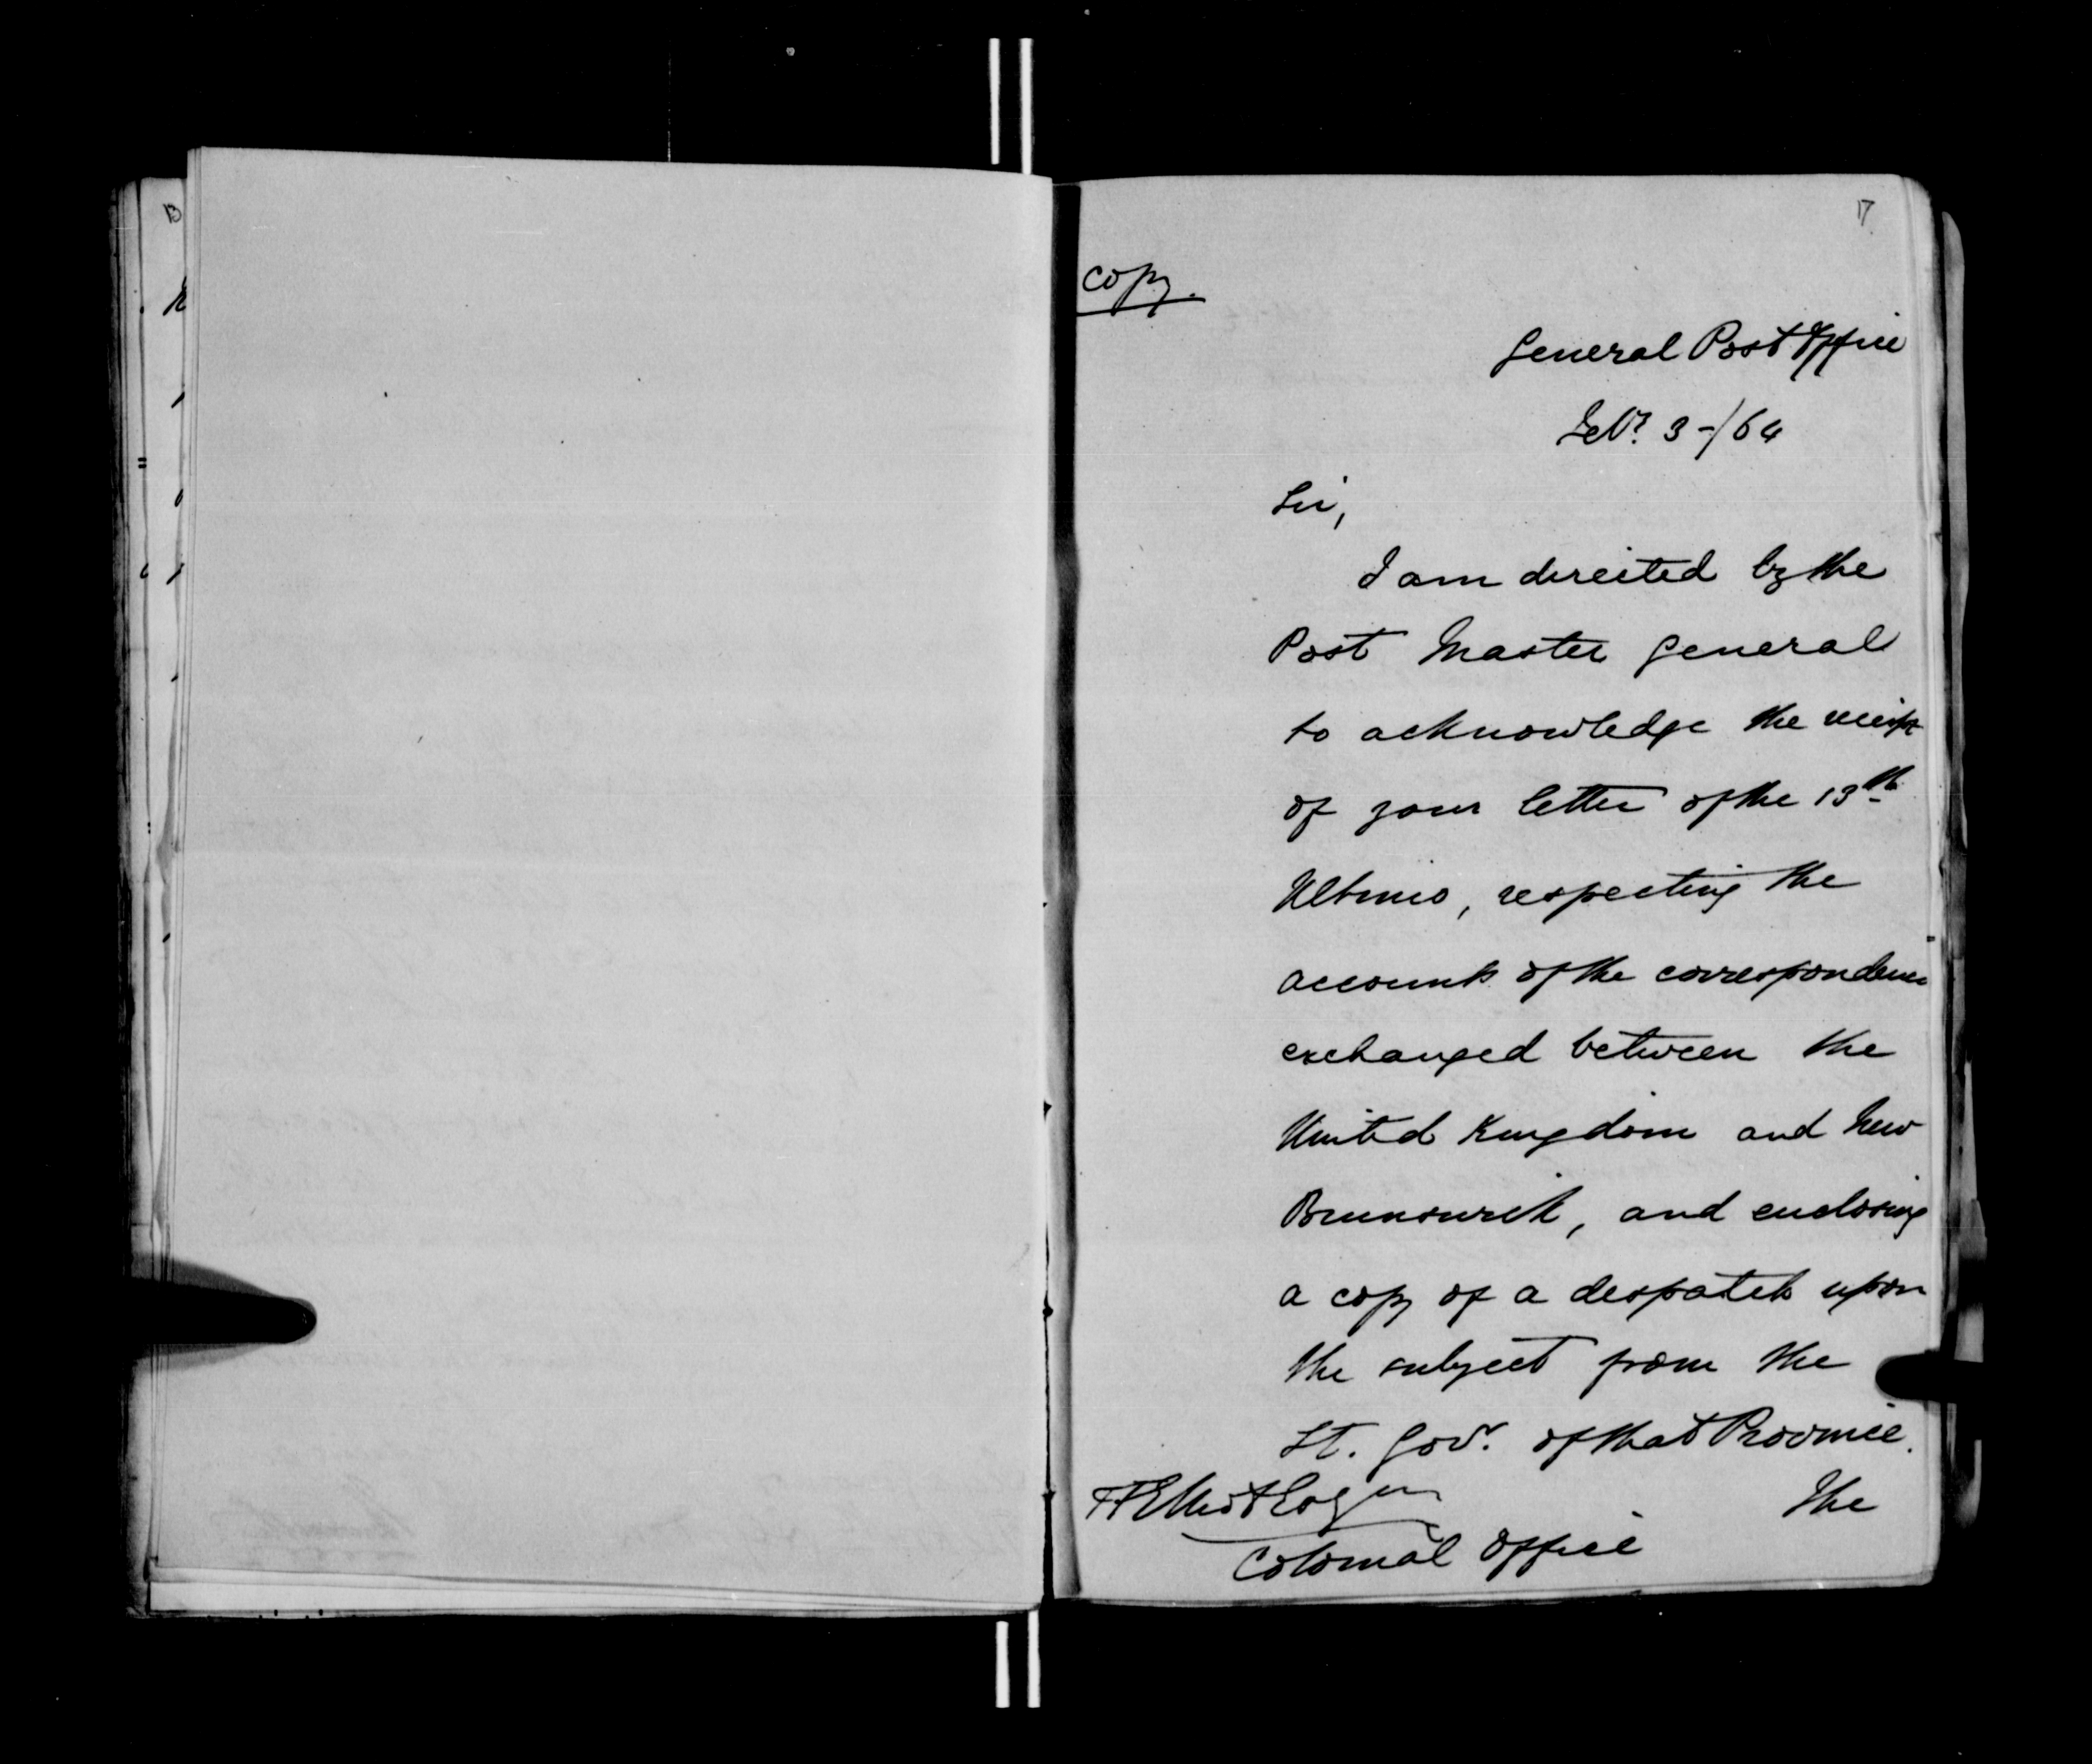 17
Copy.
General Post Office
Feby. 3 -/64
Sir,
I am directed by the
Post Master General
to acknowledge the receipt
of your letter of the 13th
Ultimo, respecting the
accounts of the correspondence
exchanged between the
United Kingdom and New
Brunswick, and enclosing
a copy of a despatch upon
the subject from the
Lt. Govr. of that Province.
The
T F Elliot Esq
Colonial Office